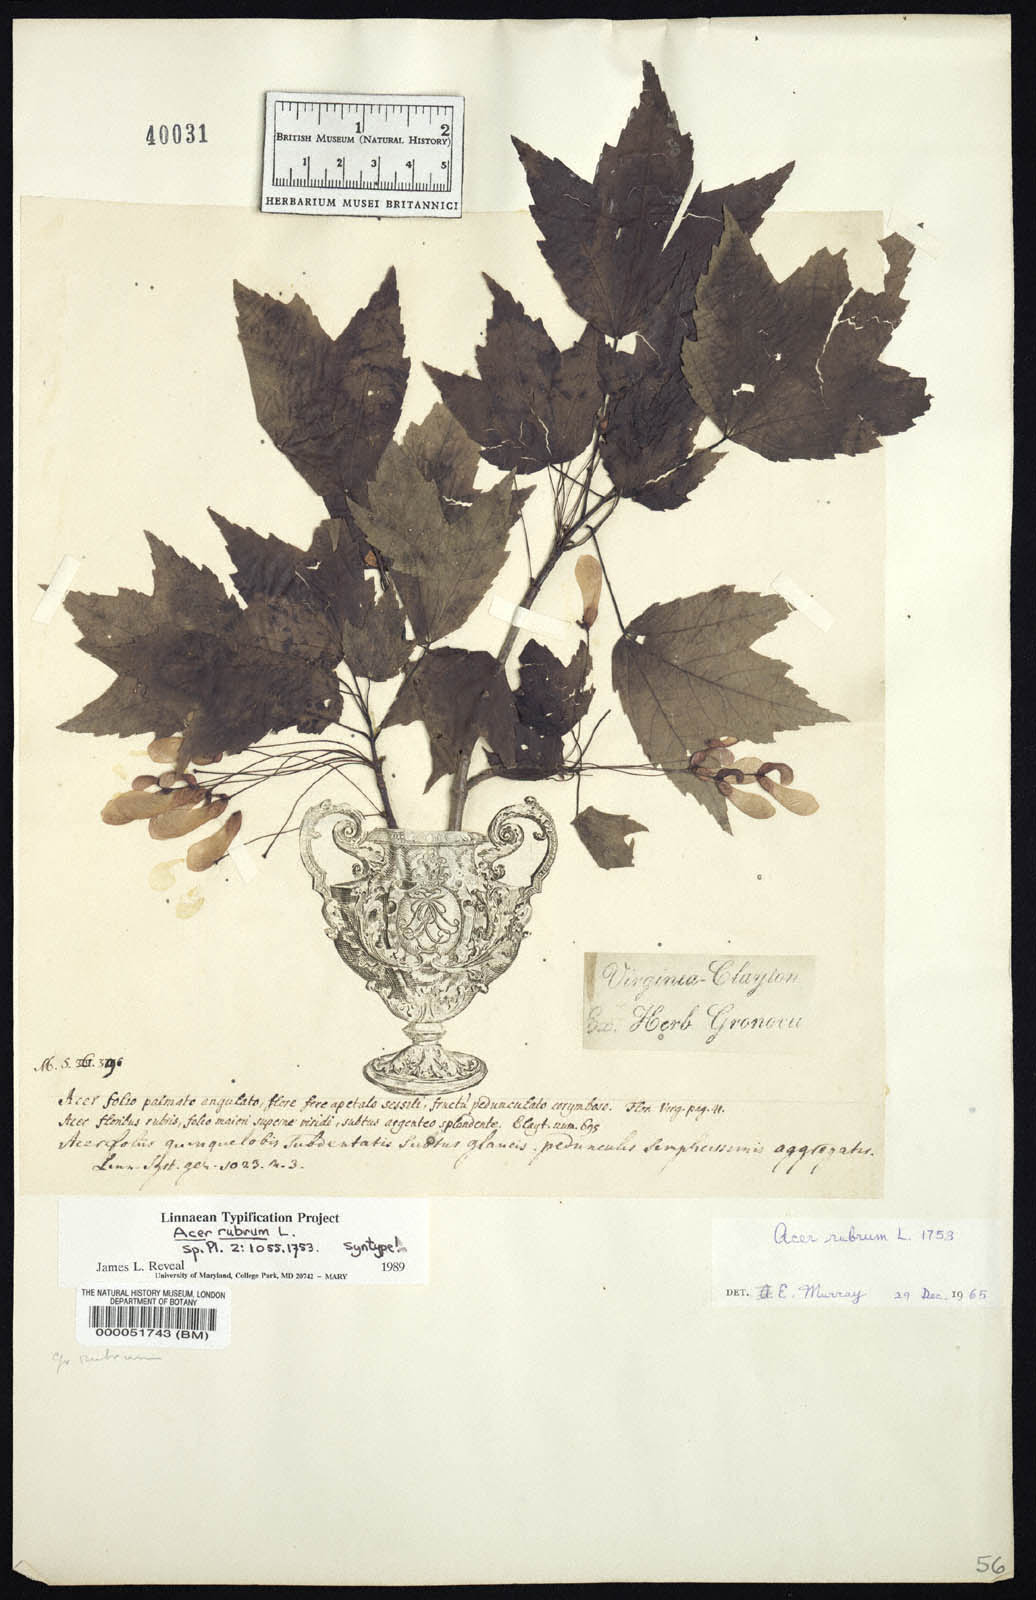 40031
1 2
BRITISH MUSEUM (NATURAL HISTORY)
1 2 3 4 5
HERBARIUM MUSEI BRITANNICI
Virginia-Clayton
Herb Gronovii
M. S.
Acer folio palmato angulato, flore fere apetalo sessili, fructu pedunculato corymboso. Flor. Virg. pag. 41.
Acer floribus rubris, folio majori superne viridi, subtus argenteo splendente. Clayt. num. 695
Acer foliis quinquelobis subdentatis subtus glaucis, pedunculis simplicissimis aggregatis.
Linn. Syst. gen. 1023. n. 3.
Linnaean Typification Project
Acer rubrum L.
Sp. Pl. 2: 1055. 1753. Syntype!
James L. Reveal 1989
University of Maryland, College Park, MD 20742 – MARY
THE NATURAL HISTORY MUSEUM, LONDON
DEPARTMENT OF BOTANY
000051743 (BM)
rubrum
Acer rubrum L. 1753
DET. E. Murray 29 Dec. 1965
56